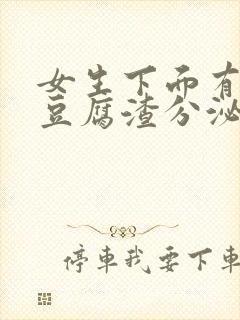 女生下面有
豆腐渣分泌
停车我要下车